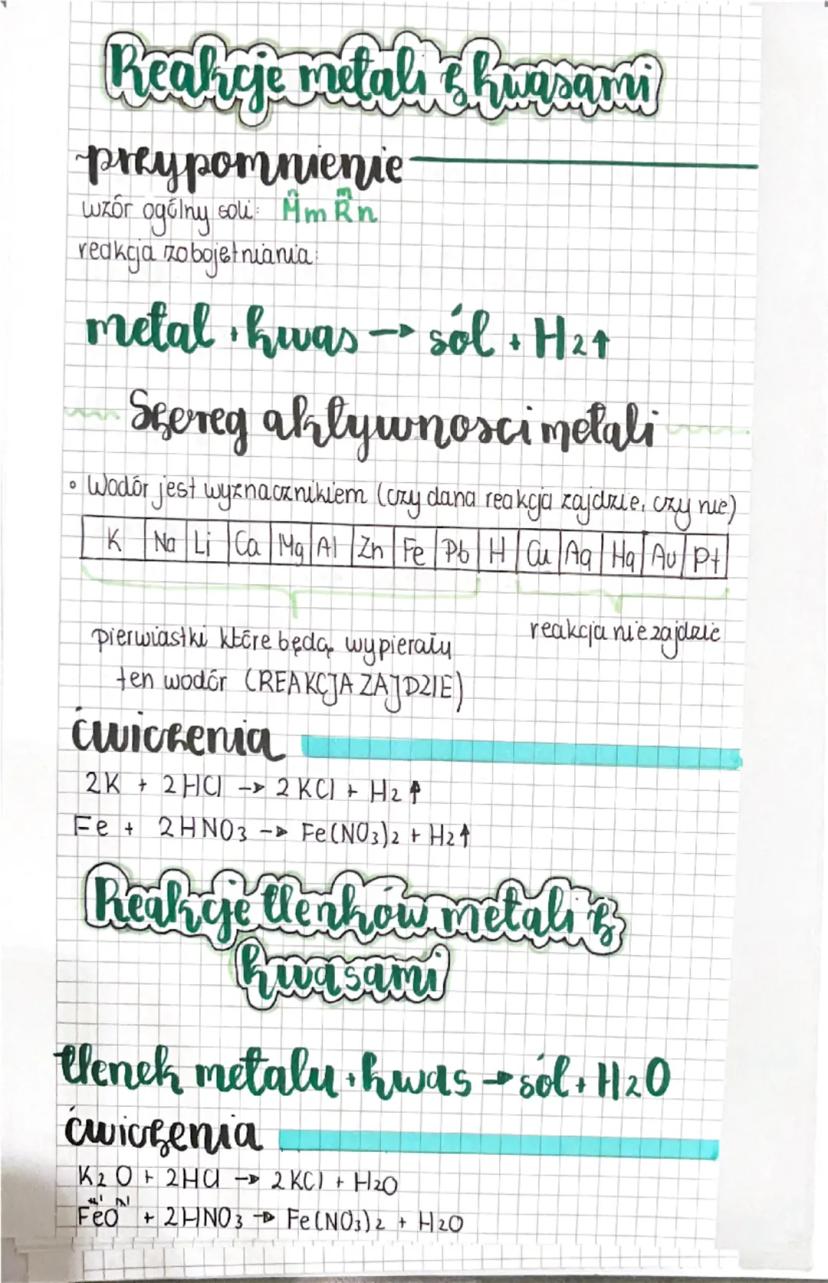 Reakcje metali z kwasami
przypomnienie
wzór ogólny soli: MmRn
n m
reakcja zobojętniania:
metal + kwas → sól + H2↑
Szereg aktywnosci metali
• Wodór jest wyznacznikiem (czy dana reakcja zajdzie, czy nie)
K Na Li Ca Mg Al Zn Fe Pb H Cu Ag Hg Au Pt
pierwiastki które będą wypierały
reakcja nie zajdzie
ten wodór (REAKCJA ZAJDZIE)
ćwiczenia
2K + 2HCl → 2KCl + H2↑
Fe + 2HNO3 → Fe(NO3)2 + H2↑
Reakcje tlenków metali z
kwasami
tlenek metalu + kwas → sól + H2O
ćwiczenia
K2O + 2HCl → 2KCl + H2O
FeO + 2HNO3 → Fe(NO3)2 + H2O